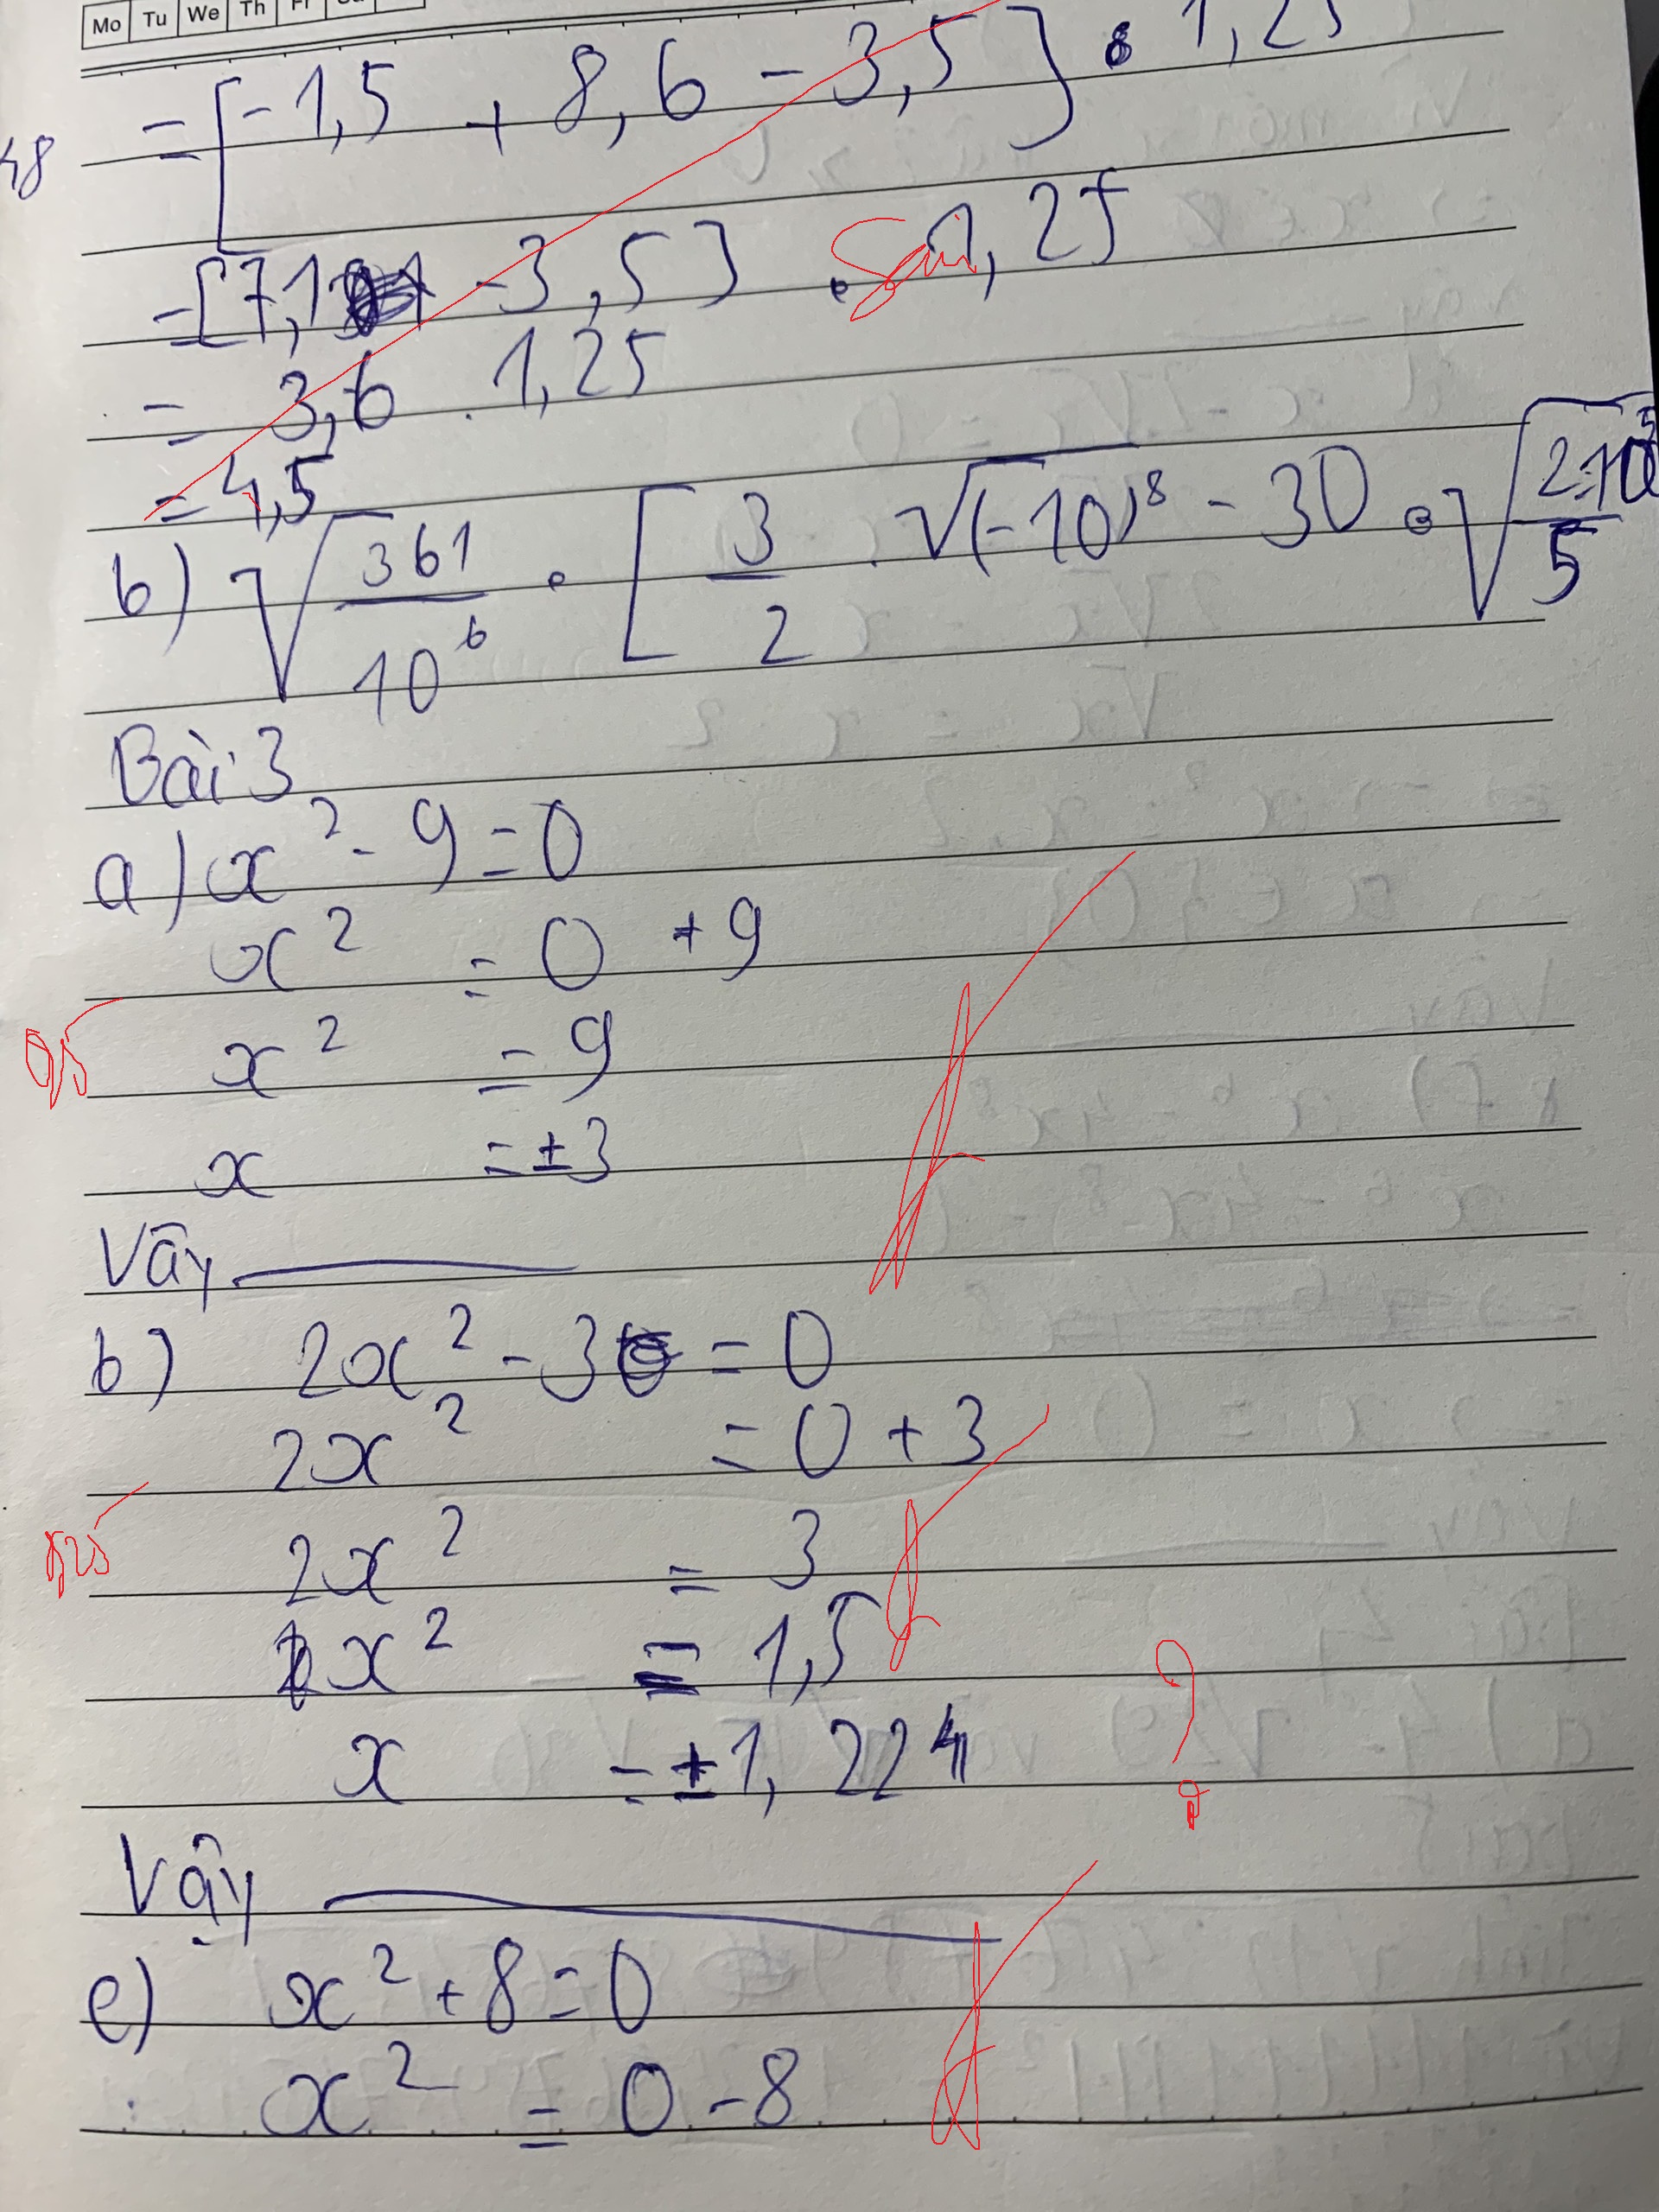 Mo Tu We Th Fr
48
= [-1,5 + 8,6 - 3,5] : 1,25
= [7,1 - 3,5] . 1,25
Sai
= 3,6 . 1,25
= 4,5
b) √(361/10^6) . [3/2 . √(-10)^8 - 30 . √(2.10^5/5)
Bài 3
a) x² - 9 = 0
x² = 0 + 9
0,5
x² = 9
x = ±3
Vây
b) 2x² - 3 = 0
2x² = 0 + 3
2x² = 3
x² = 1,5
x = ±1,224
?
Vậy
e) x² + 8 = 0
x² = 0 - 8